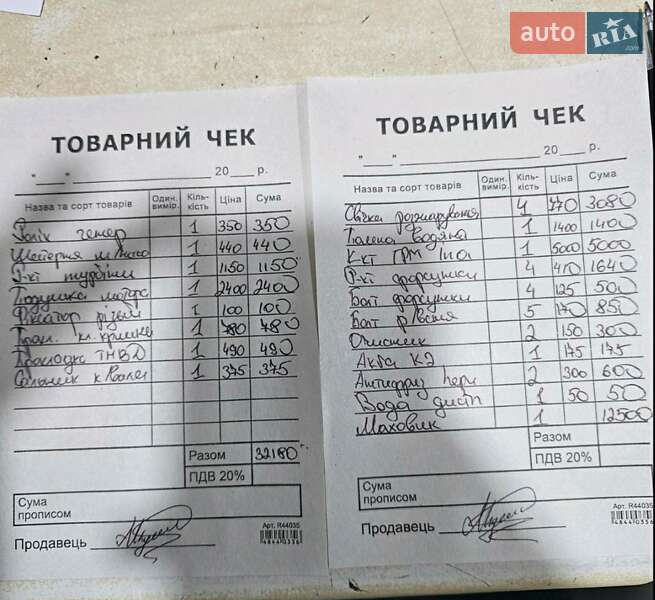 auto RIA .com
ТОВАРНИЙ ЧЕК
"___" ______________ 20___ р.
Назва та сорт товарів Один. вимір. Кіль-кість Ціна Сума
Ролік генер 1 350 350
Шестерня 1 440 440
Р-кт турбіни 1 1150 1150
Подушка мотора 1 2400 2400
Фіксатор різьби 1 100 100
Прокл. кл. кришки 1 780 780
Прокладка ТНВД 1 490 490
Сальнік к Вала 1 375 375
Разом 32180
ПДВ 20%
Сума прописом
Продавець
Арт. R44035
4844 0336
ТОВАРНИЙ ЧЕК
"___" ______________ 20___ р.
Назва та сорт товарів Один. вимір. Кіль-кість Ціна Сума
Свічка розжарування 4 770 3080
Помпа Водяна 1 1400 1400
К-кт ГРМ Ina 1 5000 5000
Р-кт форсунки 4 410 1640
Болт форсунки 4 125 500
Болт 5 170 850
Очисник 2 150 300
1 175 175
Антифриз 2 300 600
Вода дист 1 50 50
Маховик 1 12500
Разом
ПДВ 20%
Сума прописом
Продавець
Арт. R44035
4844 0336